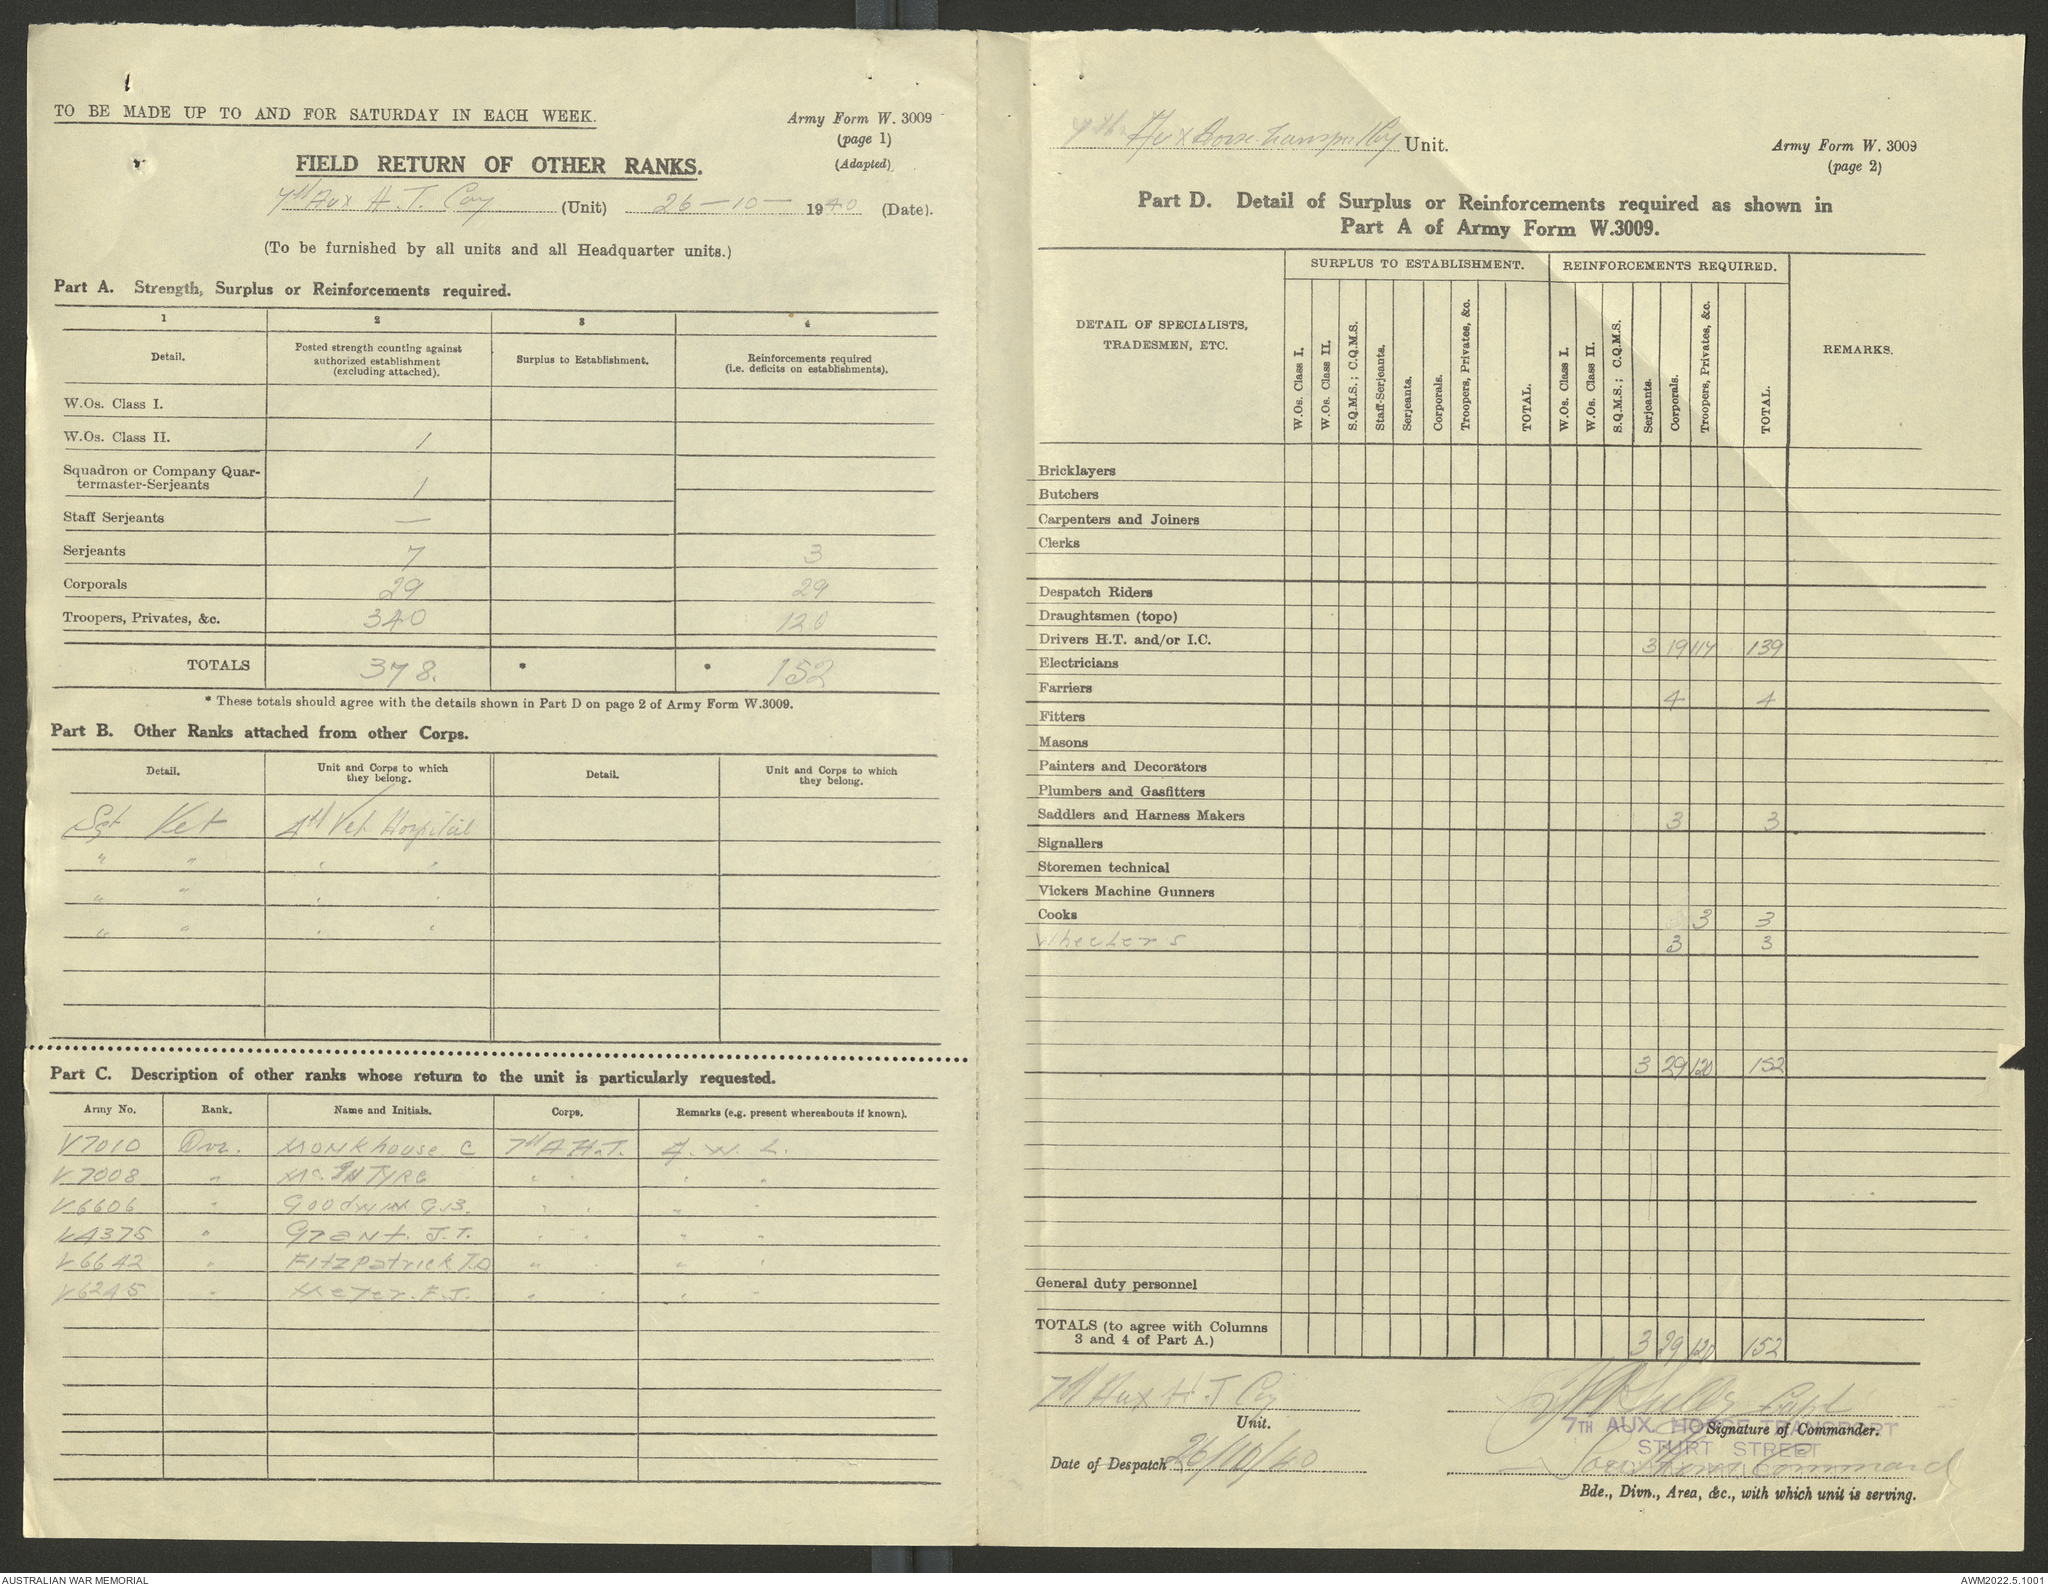 TO BE MADE UP TO AND FOR SATURDAY IN EACH WEEK.
Army Form W. 3009
(page 1)
(Adapted)
FIELD RETURN OF OTHER RANKS.
7th Aux H. T. Coy (Unit) 26-10- 1940 (Date).
(To be furnished by all units and all Headquarter units.)
Part A. Strength, Surplus or Reinforcements required.
1 2 3 4
Detail. Posted strength counting against authorized establishment (excluding attached). Surplus to Establishment. Reinforcements required (i.e. deficits on establishments).
W.Os. Class I.
W.Os. Class II. 1
Squadron or Company Quar-
termaster-Serjeants 1
Staff Serjeants —
Serjeants 7 3
Corporals 29 29
Troopers, Privates, &c. 340 120
TOTALS 378. * * 152
* These totals should agree with the details shown in Part D on page 2 of Army Form W.3009.
Part B. Other Ranks attached from other Corps.
Detail. Unit and Corps to which they belong. Detail. Unit and Corps to which they belong.
Sgt Vet 4th Vet Hospital
" " " "
" " " "
" " " "
Part C. Description of other ranks whose return to the unit is particularly requested.
Army No. Rank. Name and Initials. Corps. Remarks (e.g. present whereabouts if known).
V7010 Dvr. Monkhouse C 7th A H.T. A. W. L.
V7008 " McINTYRE " " " "
V6606 " Goodwin G.B. " " " "
V4375 " Grant. J.T. " " " "
V6642 " Fitzpatrick T.D " " " "
V6245 " F.J. " " " "
7th Aux Horse Transport Coy Unit.
Army Form W. 3009
(page 2)
Part D. Detail of Surplus or Reinforcements required as shown in
Part A of Army Form W.3009.
DETAIL OF SPECIALISTS, TRADESMEN, ETC. SURPLUS TO ESTABLISHMENT. REINFORCEMENTS REQUIRED. REMARKS.
W.Os. Class I. W.Os. Class II. S.Q.M.S.; C.Q.M.S. Staff-Serjeants. Serjeants. Corporals. Troopers, Privates, &c. TOTAL. W.Os. Class I. W.Os. Class II. S.Q.M.S.; C.Q.M.S. Serjeants. Corporals. Troopers, Privates, &c. TOTAL.
Bricklayers
Butchers
Carpenters and Joiners
Clerks
Despatch Riders
Draughtsmen (topo)
Drivers H.T. and/or I.C. 3 19 117 139
Electricians
Farriers 4 4
Fitters
Masons
Painters and Decorators
Plumbers and Gasfitters
Saddlers and Harness Makers 3 3
Signallers
Storemen technical
Vickers Machine Gunners
Cooks 3 3
Wheelers 3 3
3 29 120 152
General duty personnel
TOTALS (to agree with Columns
3 and 4 of Part A.) 3 29 120 152
7th Aux H. T Coy
Unit.
Capt
7TH AUX. HORSE TRANSPORT
Signature of Commander.
STURT STREET
Date of Despatch 26/10/40
Southern Command
Bde., Divn., Area, &c., with which unit is serving.
AUSTRALIAN WAR MEMORIAL
AWM2022.5.1001